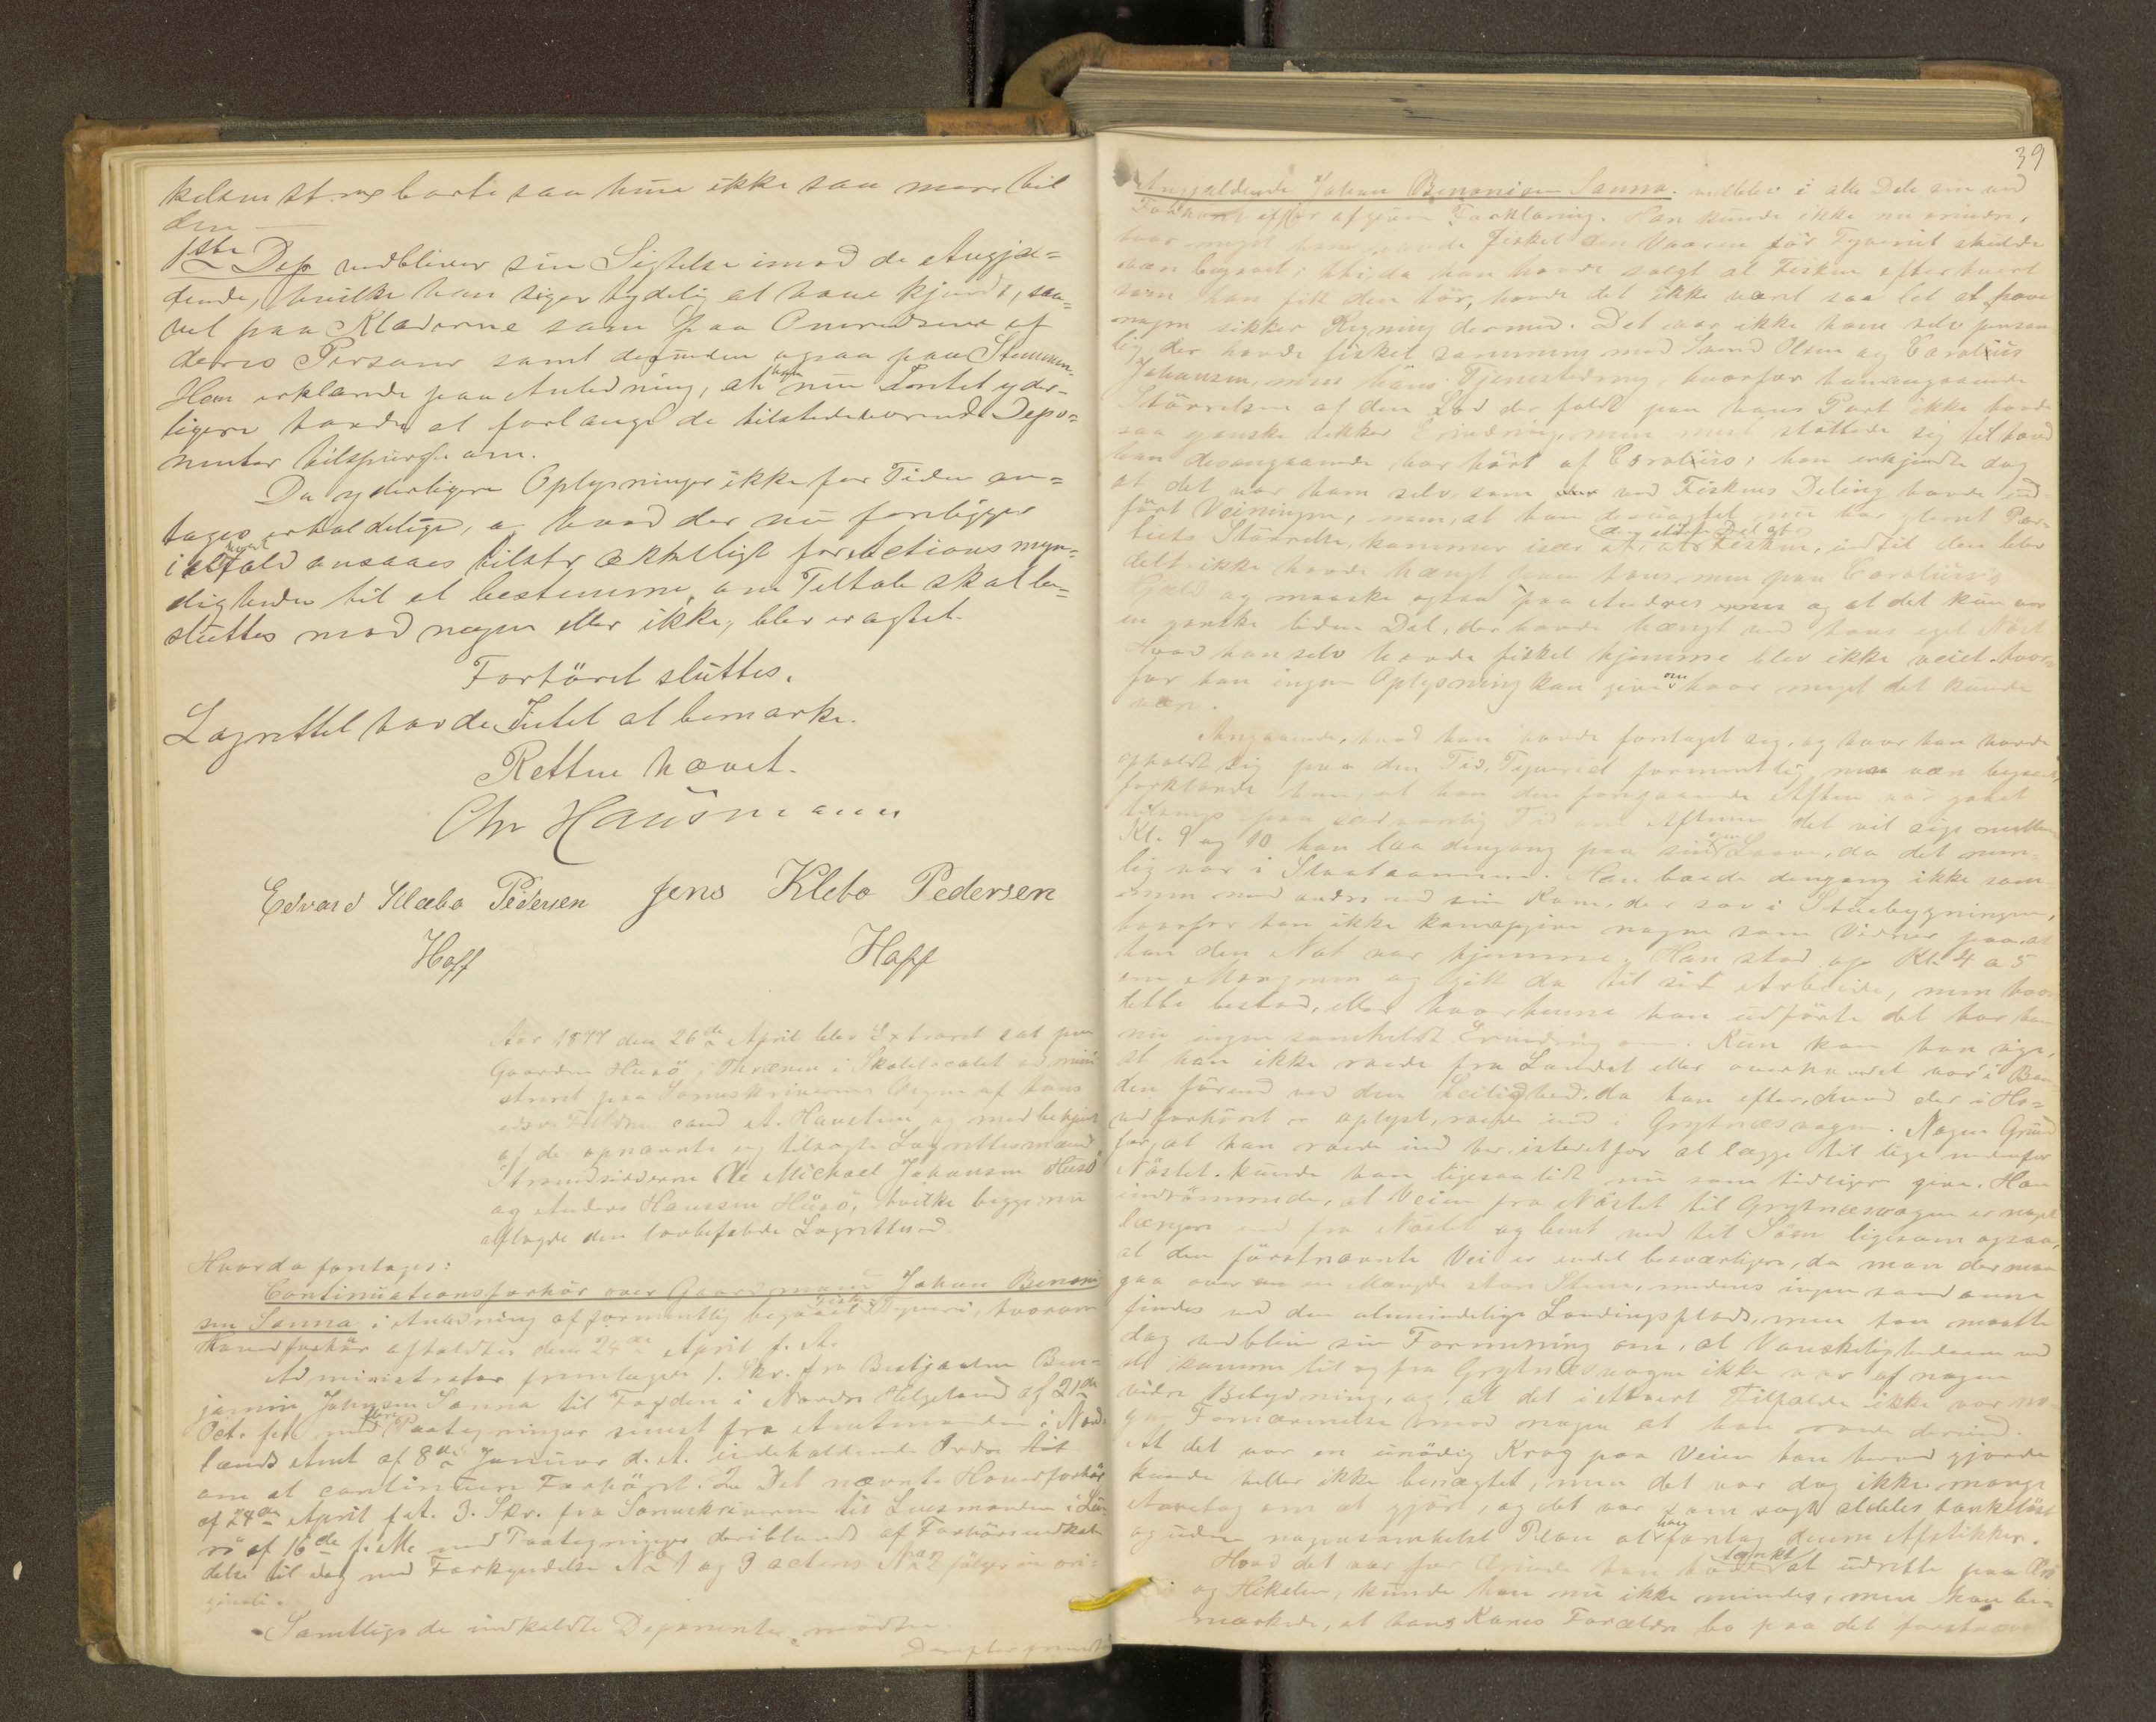 kelsen strax borte saa hun ikke saa mere til
den —
1ste Dep vedbliver sin Sigtelse imod de Angjæ=
dende, hvilke han siger tydelig at have kjendt, saa=
vel paa Klæderne som paa Omridsene af
deres Personer samt desuden ogsaa paa Stemmen.
Han erklærede paa Anledning, at han nu Intet yder=
ligere havde at forlange de tilstedeværende Depo=
nenter tilspurgte om.
Da yderligere Oplysninger ikke for Tiden an=
tages erholdelige, og hvad der nu foreligger
i alfald ansaaes tilstrækkeligt for Actionsmyn=
digheden til at bestemme, om Tiltale skal be=
sluttes mod nogen eller ikke, blev eragtet
Forhöret sluttes.
Lagrettet havde Intet at bemærke.
Retten hævet.
Chr Hausmann
Edvard Klæbo Pedersen Jens Klebo Pedersen
Hoff Hoff
Aar 1877 den 26de April blev Extraret sat paa
Gaarden Husö i Thrænen i Skolelocalet admini
streret paa Sorenskriverens Vegne af hans
edsv. Fuldm. cand. A. Haustrm og medbetjent
af de opnævnte og tilsagte Lagrettesmænd
Strandsidderne Ole Michael Johansen Husö
og Anders Hanssen Husö, hvilke begge nu
aflagde den lovbefalede Lagretteed.
Hvorda foretoges:
Continuationsforhör over Gaardmand Johan Benoni
sen Sanna i Anledning af formentlig begaaet Fiske Tyveri, hvorom
Hovedforhör afholdtes den 24de April f. A.
Administrator fremlagde 1. Skr. fra Bestjaalne Ben=
jamin Johnsen Sanna til Fogden i Nordre Helgeland af 21de
Oct. f. A. med flere Paategninger senest fra Amtmanden i Nord
lands Amt af 8de Januar d. A. indeholdende Ordre til
om at continuere Forhöret. 2. Det nævnte Hovedforhör
af 24de April f. A. 3. Skr. fra Sorenskriveren til Lensmanden i Lu
rö af 16de f. M. med Paategninger deriblandt af Forhörsindkal
delse til idag med Forkyndelse No 1 og 3 acteres No 2 fölger in ori=
ginali.
Samtlige de indkaldte Deponenter mödte.
Derefter fremstod
39
Angjældende Johan Benonisen Sanna. vedblev i alle Dele sin ved
Forhöret afgivne Forklaring. Han kunde ikke nu erindre,
hvor meget han havde fisket den Vaaren för Tyveriet skulde
være begaaet; thi da han havde solgt al Fisken efterhvert
som han fik den tör, havde det ikke været saa let at have
nogen sikker Regning dermed. Det var ikke ham selv person
lig der havde fisket sammen med Sivert Olsen og Carolius
Johansen, men hans Tjenestedreng, hvorfor han angaaende
Störrelsen af den Lod der faldt paa hans Part ikke havde
saa ganske sikker Erindring, men maa stöttede sig til hvad
han desangaaende har hört af Carolius; han erkjendte dog
at det var ham selv som ved Fiskens Deling havde ud
fört Veiningen, men, at han desuagtet nu har glemt Par=
tiets Störrelse, kommer især af, at den störste Del af Fisken, indtil den blev
delt ikke havde hængt paa hans, men paa Carolius's
Hjeld og maaske ogsaa paa Andres og at det kun var
en ganske liden Del, der havde hængt ved hans eget Nöst
Hvad han selv havde fisket hjemme blev ikke veiet, hvor=
for han ingen Oplysning kan give om hvor meget det kunde
være.
Angaaende, hvad han havde foretaget sig, og hvor han havde
opholdt sig paa den Tid, Tyveriet formentlig maa være begaaet,
forklarede han, at han den foregaaende Aften var gaaet
tilsengs paa sædvanlig Tid om Aftenen det vil sige mellem
Kl. 9 og 10 han laa dengang paa sin Laave, da det nem=
lig var i Slaataannen. Han boede dengang ikke sam=
men med andre end sin Kone, der sov i Stuebygningen,
hvorfor han ikke kan opgive nogen som Vidner paa, at
han den Nat var hjemme. Han stod op Kl. 4 a 5
om Morgenen og gik da til sit Arbeide, men hvori
dette bestod, eller hvorhenne han udförte det har han
nu ingen somhelst Erindring om. Kun kan han sige,
at han ikke roede fra Landet eller overhovedet var i Baa
den förend ved den Leilighed, da han efter, hvad der i Ho=
vedforhöret er oplyst, roede ind i Grytnæsvaagen. Nogen Grund
for, at han roede ind der istedetfor at lægge til lige nedenfor
Nöstet kunde han ligesaalidt nu som tidligere give. Han
indrömmede, at Veien fra Nöstet til Grytnæsvaagen er noget
længere end fra Nöstet og bent ned til Söen ligesom ogsaa,
at den förstnævnte Vei er endel besværligere, da man der maa
gaa over en Mængde store Stene, medens ingen saadanne
findes ved den almindelige Landingsplads, men han maatte
dog vedblive sin Formening om, at Vanskelighederne ved
at komme til og fra Grytnæsvaagen ikke var af nogen
videre Betydning, og, at det i ethvert Tilfælde ikke var no
gen Fornærmelse imod nogen at han roede derind.
At det var en unödig Krog paa Veien han herved gjorde
kunde heller ikke benægtes, men det var dog ikke mange
Aaretag om at gjöre, og det var som sagt aldeles tanklöst
og uden nogensomhelst Plan at han foretog denne Afstikker.
Hvad det var for Ærinde han havde tænkt at udrette paa
og Hekelen, kunde han nu ikke mindes, men han be=
mærkede, at hans Kones Forældre bo paa det förstnævnte